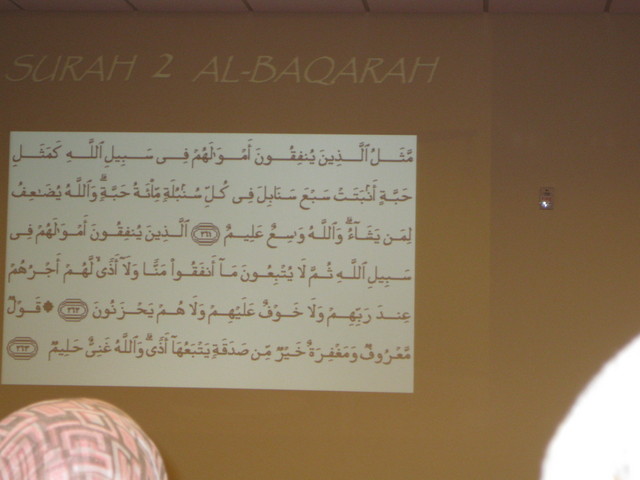 SURAH 2 AL-BAQARAH
مَّثَلُ ٱلَّذِينَ يُنفِقُونَ أَمْوَٰلَهُمْ فِى سَبِيلِ ٱللَّهِ كَمَثَلِ
حَبَّةٍ أَنۢبَتَتْ سَبْعَ سَنَابِلَ فِى كُلِّ سُنۢبُلَةٍ مِّا۟ئَةُ حَبَّةٍ ۗ وَٱللَّهُ يُضَـٰعِفُ
لِمَن يَشَآءُ ۗ وَٱللَّهُ وَٰسِعٌ عَلِيمٌ ٢٦١ ٱلَّذِينَ يُنفِقُونَ أَمْوَٰلَهُمْ فِى
سَبِيلِ ٱللَّهِ ثُمَّ لَا يُتْبِعُونَ مَآ أَنفَقُوا۟ مَنًّا وَلَآ أَذًى ۙ لَّهُمْ أَجْرُهُمْ
عِندَ رَبِّهِمْ وَلَا خَوْفٌ عَلَيْهِمْ وَلَا هُمْ يَحْزَنُونَ ٢٦٢ ۞ قَوْلٌ
مَّعْرُوفٌ وَمَغْفِرَةٌ خَيْرٌ مِّن صَدَقَةٍ يَتْبَعُهَآ أَذًى ۗ وَٱللَّهُ غَنِىٌّ حَلِيمٌ ٢٦٣